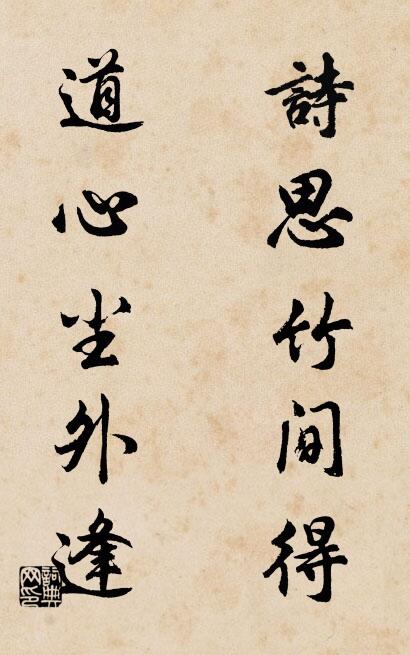 詩思竹間得
道心尘外逢
詞典
网印